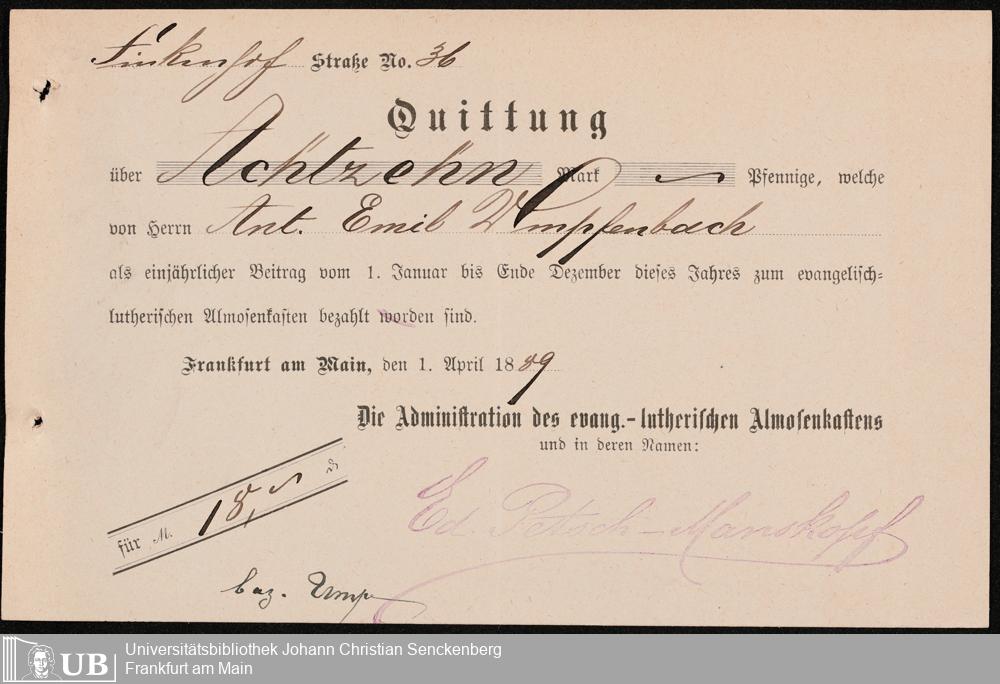 Finkenhof Straße No. 36
Quittung
über Achtzehn Mark Pfennige, welche
von Herrn Ant. Emil Wimpfenbach
als einjährlicher Beitrag vom 1. Januar bis Ende Dezember dieses Jahres zum evangelisch-
lutherischen Almosenkasten bezahlt worden sind.
Frankfurt am Main, den 1. April 1889
Die Administration des evang.-lutherischen Almosenkastens
und in deren Namen:
für M. 18,
Ed Petsch-Manskopf
bez.
Universitätsbibliothek Johann Christian Senckenberg
UB Frankfurt am Main